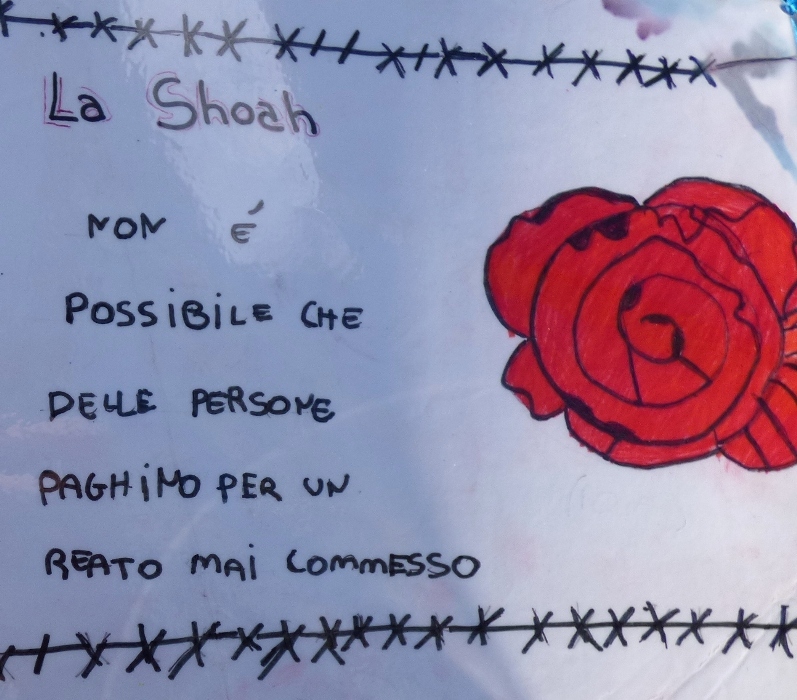 La Shoah
NON É
POSSiBiLE CHE
DELLE PERSONE
PAGHiNO PER UN
REATO MAi COMMESSO